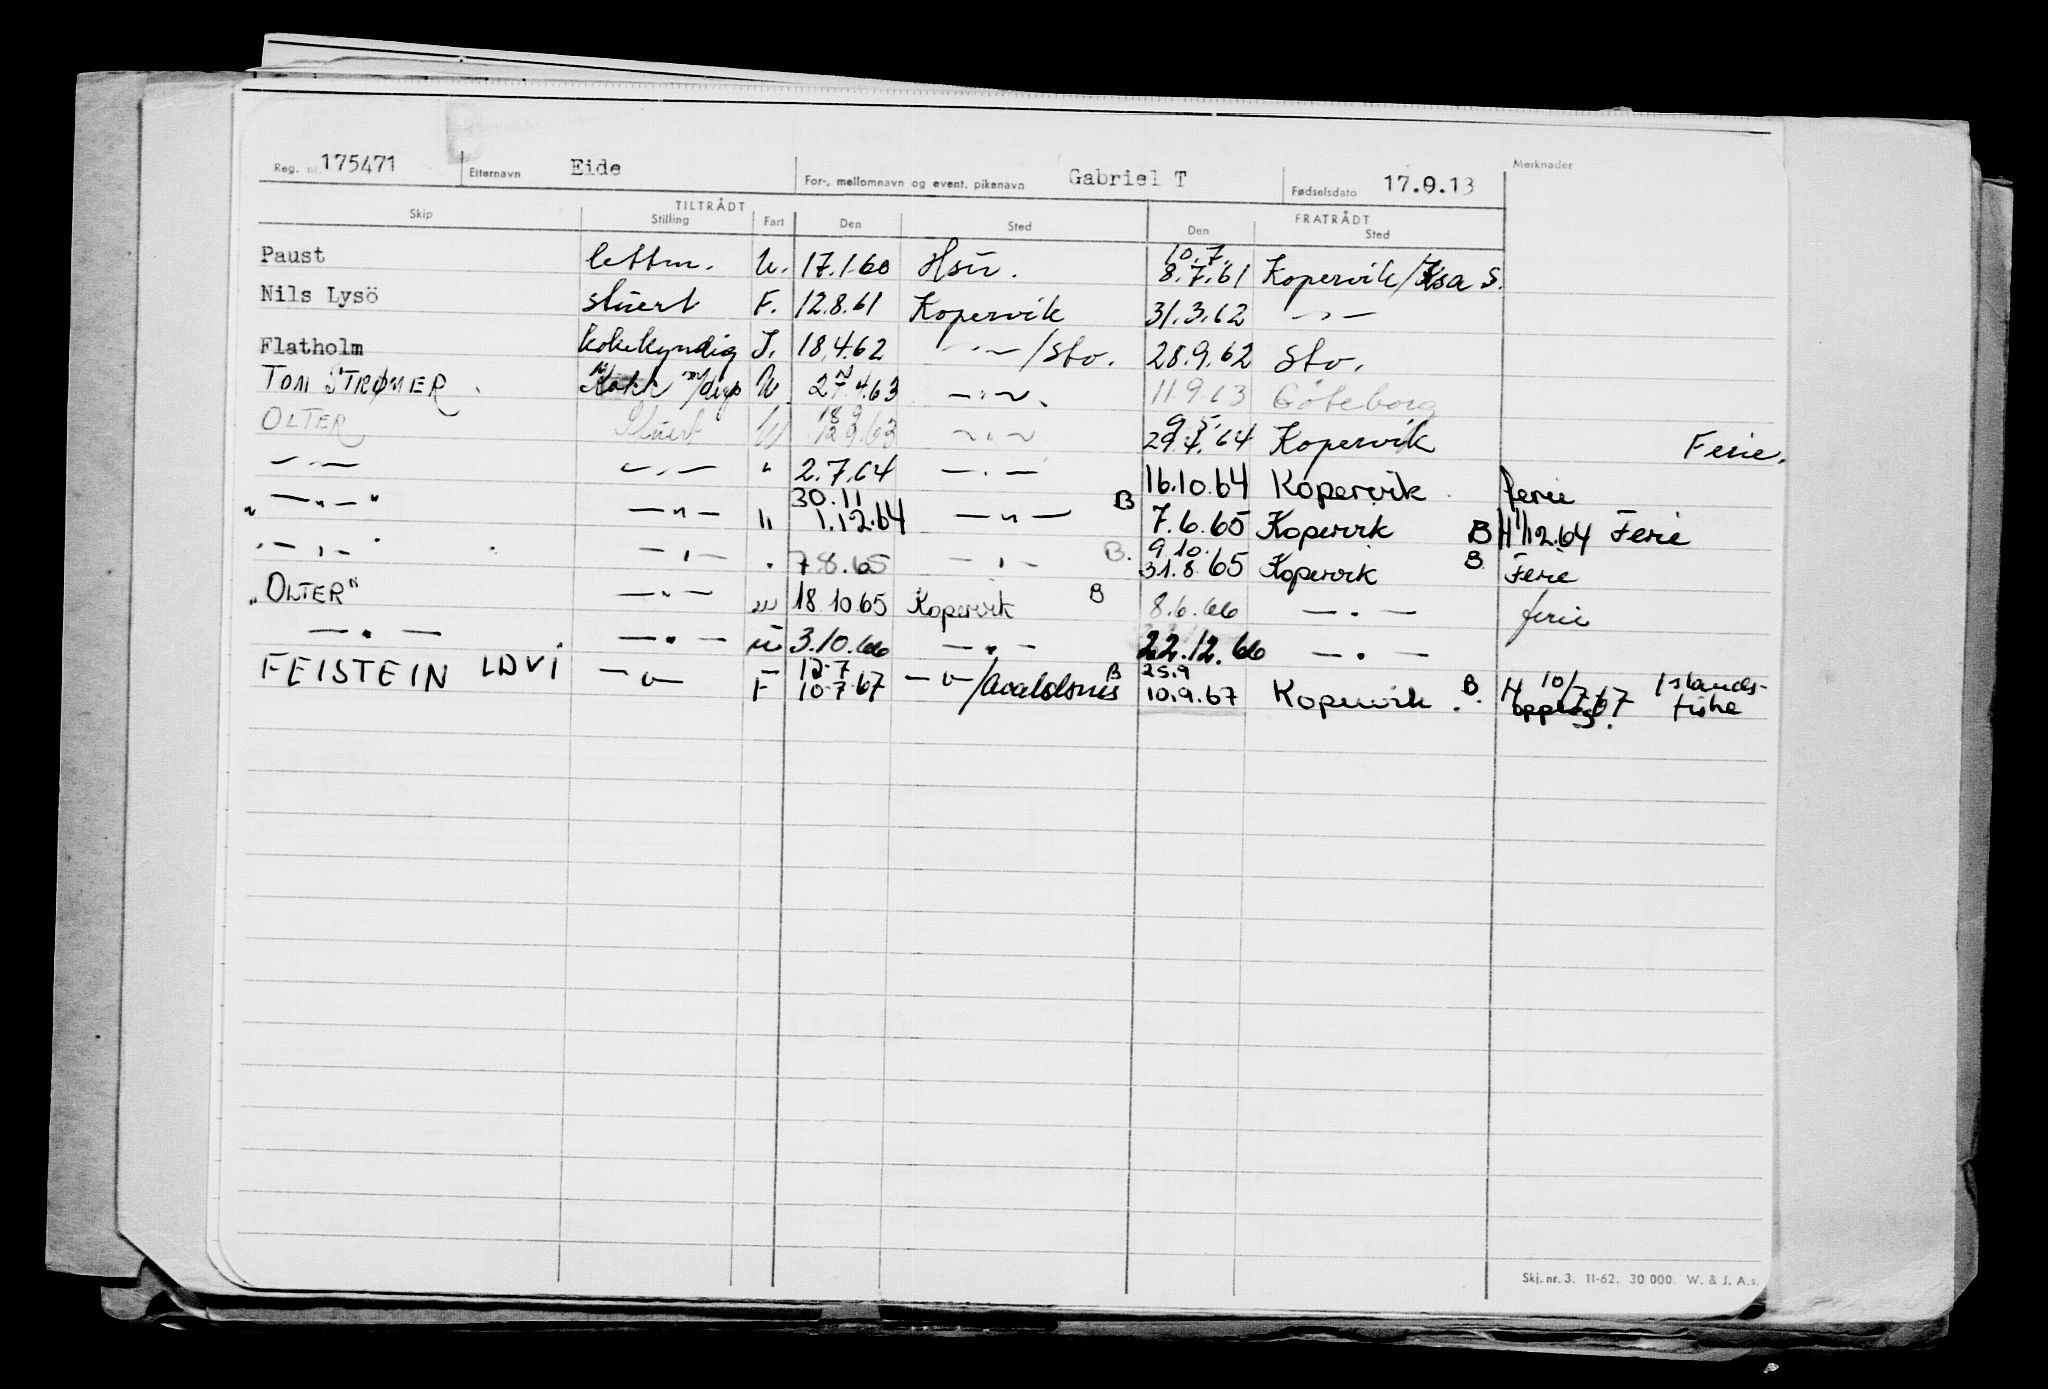 Reg. nr. 175471 Etternavn Eide For-, mellomnavn og event. pikenavn Gabriel T Fødselsdato 17.9.13 Merknader
TILTRÅDT FRATRÅDT
Skip Stilling Fart Den Sted Den Sted
10.7.
Paust lettm. U. 17.1.60 8.7.61 Kopervik/
Nils Lysö stuert F. 12.8.61 Kopervik 31.3.62 — " —
Flatholm kokekyndig I. 18.4.62 — " — /Sto. 28.9.62 Sto.
TOM STRØMER Kokk U 27.4.63 — " — 11.9.63 Göteborg
18.9 9.5.
OLTER Stuert U 12.9.63 — " — 29.4.64 Kopervik Ferie.
— " — — " — " 2.7.64 — " — 16.10.64 Kopervik ferie
30.11
" — " — " — " — " 1.12.64 — " — B 7.6.65 Kopervik B H 1/12.64 Ferie
9.10.
— " — — " — " 7.8.65 — " — B. 31.8.65 Kopervik B Ferie
"OLTER" — " — U 18.10.65 Kopervik B 8.6.66 — " — ferie
— " — — " — U 3.10.66 — " — 22.12.66 — " —
12.7 25.9
FEISTEIN LDVI — " — F 10.7.67 — " — /Avaldsnes B 10.9.67 Kopervik B. H 10/7.67 Islands-
fiske
Skj. nr. 3. 11-62. 30 000. W. & J. A.s.